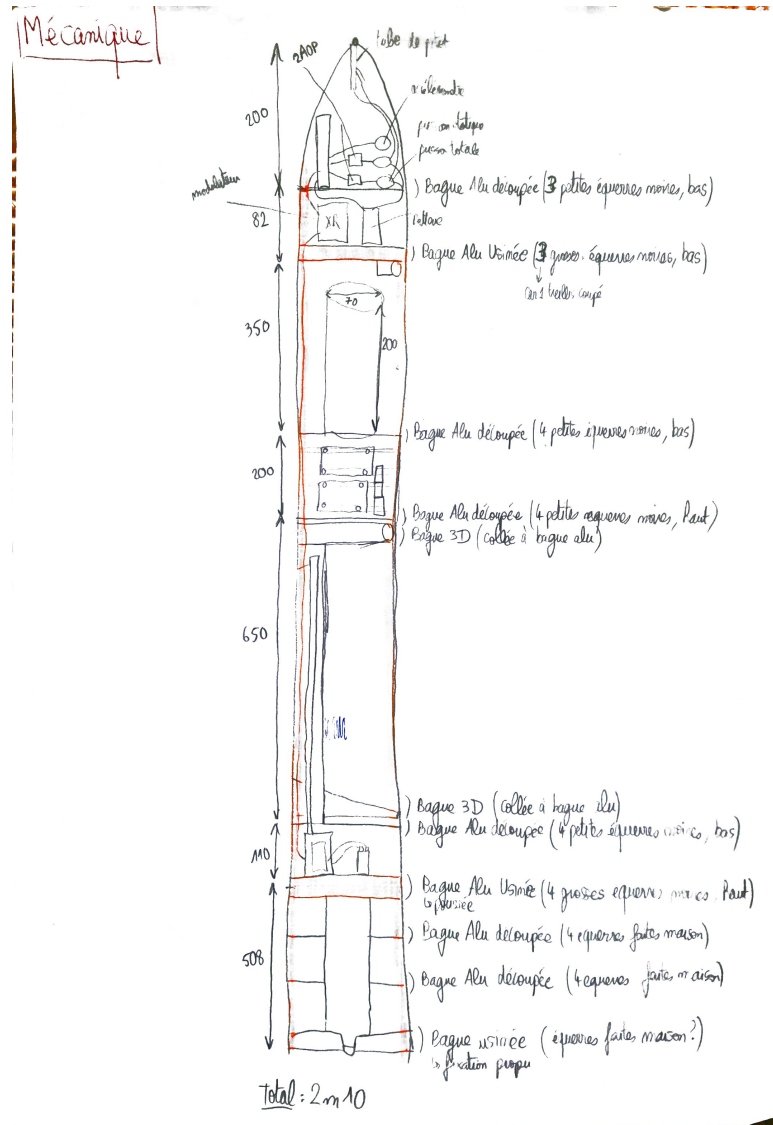 Mécanique
tube de pitot
2AOP
accéléromètre
200
pression totale
Bague Alu découpée (3 petites équerres noires, bas)
modulateur
82
XR
Bague Alu Usinée (3 grosses équerres noires, bas)
car 1 treillis coupé
70
350
200
Bague Alu découpée (4 petites équerres noires, bas)
200
Bague Alu découpée (4 petites equerres noires, haut)
Bague 3D (collée à bague alu)
650
Bague 3D (collée à bague alu)
Bague Alu découpée (4 petites équerres noires, bas)
110
Bague Alu Usinée (4 grosses equerres noires, haut)
↳ poussée
Bague Alu découpée (4 equerres faites maison)
508
Bague Alu découpée (4 equerres faites maison)
Bague usinée (équerres faites maison?)
↳ fixation propu
Total : 2m10